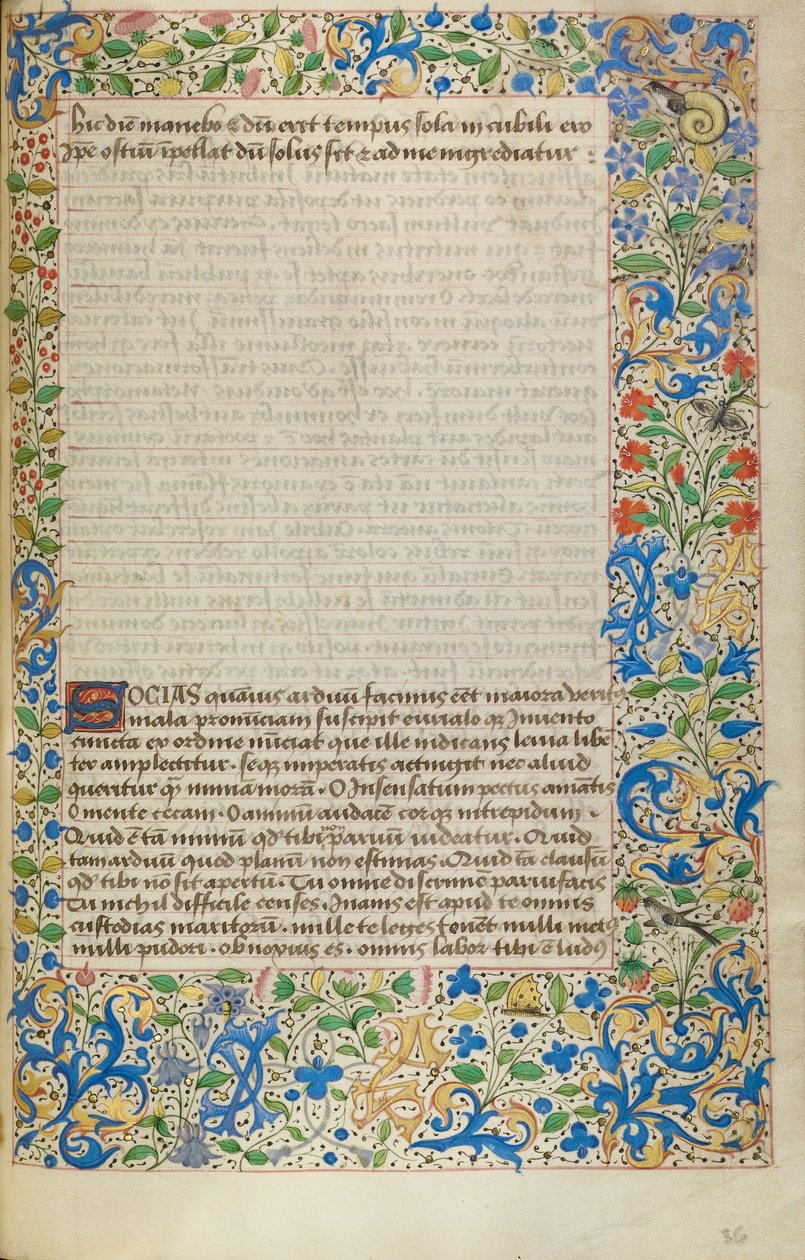 hic diē manebo & dū erit tempus sola in cubili ero
Ipē ostiū īpellat dū solus sit & ad me ingrediatur :
SOCIAS quāuis arduū facinus eēt maiora veritus
mala pronūciam suscipit eurialo qz Inuento
cuncta ex ordine nūciat que ille iudicans leuia libē
ter amplectitur · seqz imperatis actingit nec aliud
queritur qz nimiā morā · O Insensatum pectus amātis
O mente cecam · O animū audacē cor qz intrepidum ·
Quid ē tā nimiū qd' tibi non paruū uideatur · Quid
tam arduū quod planū non estimas · Quid tā clausū
qd' tibi nō sit apertū · Tu omne discrimē parui facis
Tu nichil difficile censes · Inanis est apud te omnis
custodias maritorū · nulle te leges tenēt nulli metus
nulli pudori · obnoxius es · omnis labor tibi ē ludus
36